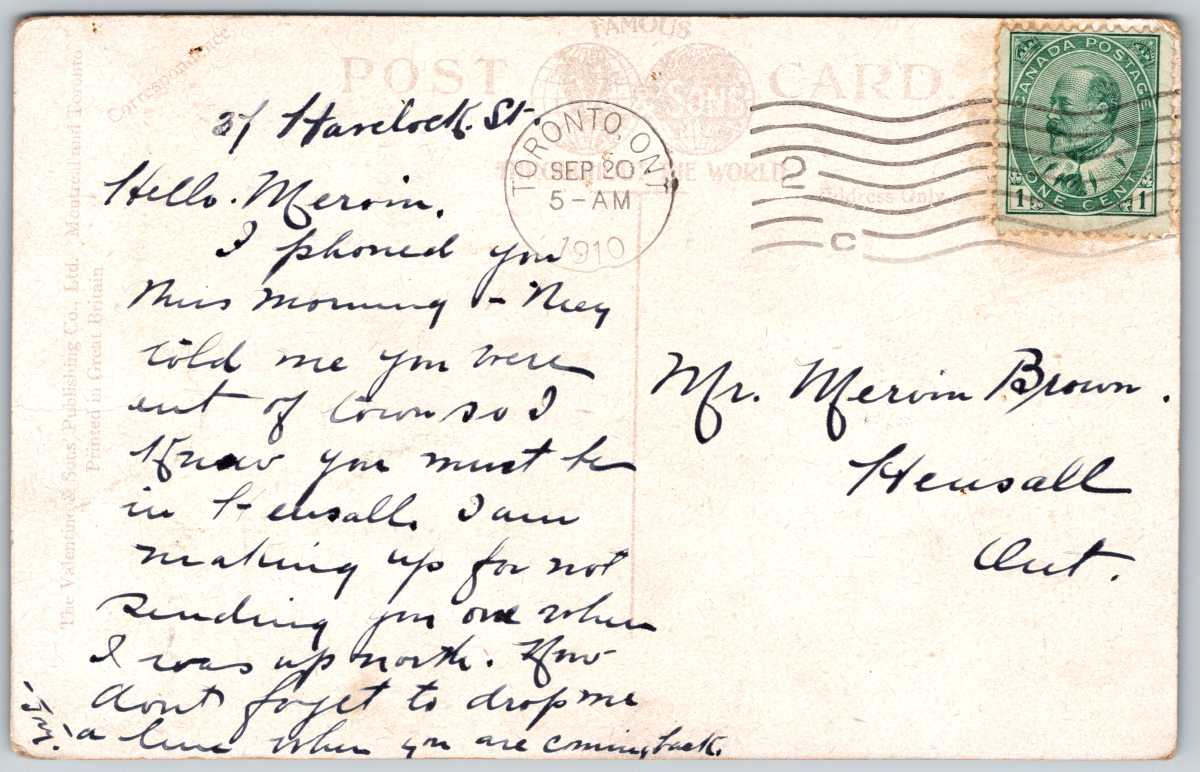 FAMOUS
POST CARD
THROUGHOUT THE WORLD
Correspondence
Address Only
The Valentine & Sons' Publishing Co., Ltd. Montreal and Toronto
Printed in Great Britain
TORONTO, ONT
SEP 20
5-AM
1910
2
c
CANADA POSTAGE
1 ONE CENT 1
37 Havelock. St.
Hello. Mervin.
I phoned you
this morning - They
told me you were
out of town so I
Knew you must be
in Hensall. I am
making up for not
sending you one when
I was up north. Now
dont forget to drop me
a line when you are coming back.
Mr. Mervin Brown.
Hensall
Ont.